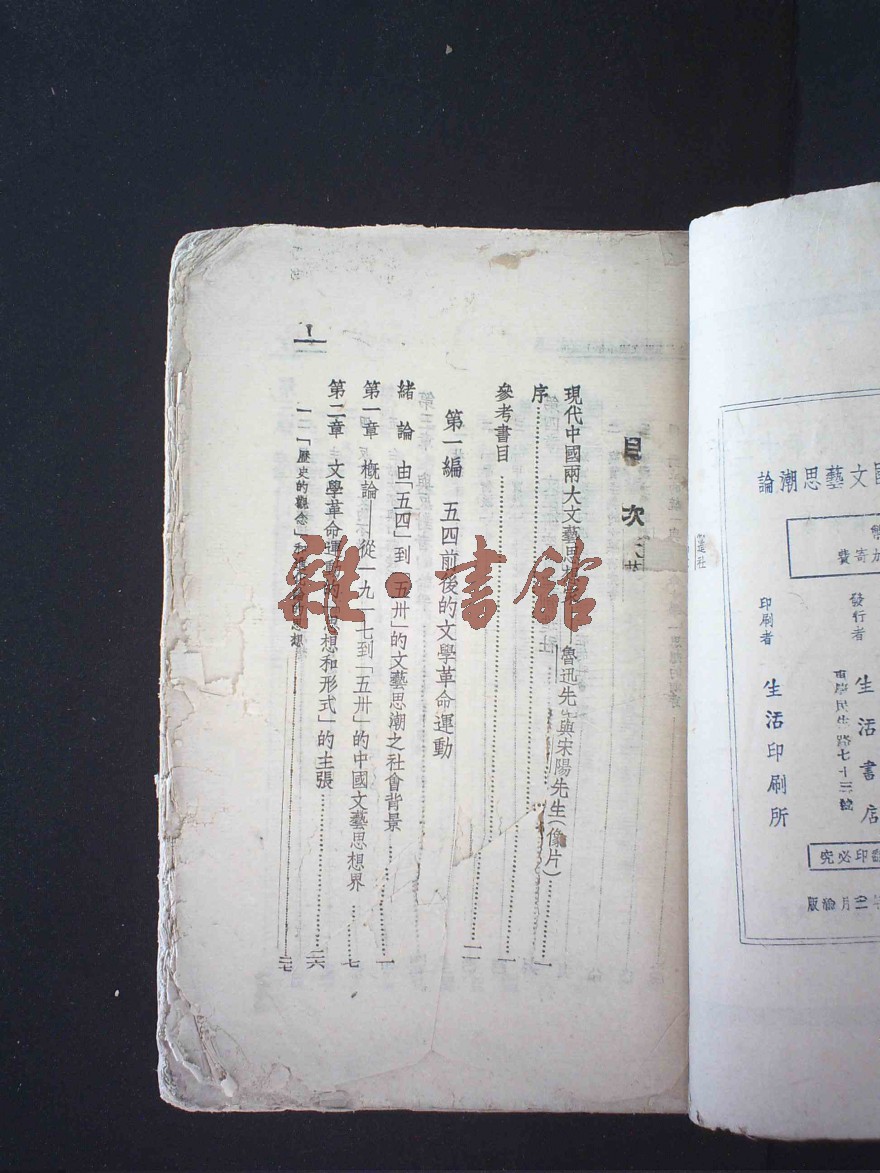 國文藝思潮論
加寄費
發行者 生活書店
路七十三號
印刷者 生活印刷所
翻印必究
月 版
目次
現代中國兩大文藝思 魯迅先生與宋陽先生(像片)
序……一
參考書目……一
第一編 五四前後的文學革命運動……一一
緒論 由「五四」到「五卅」的文藝思潮之社會背景……一
第一章 概論——從一九一七到「五卅」的中國文藝思想界……七
第二章 文學革命運動的「思想和形式」的主張……二六
一 「歷史的觀念」和 的思想……二七
雜·書館